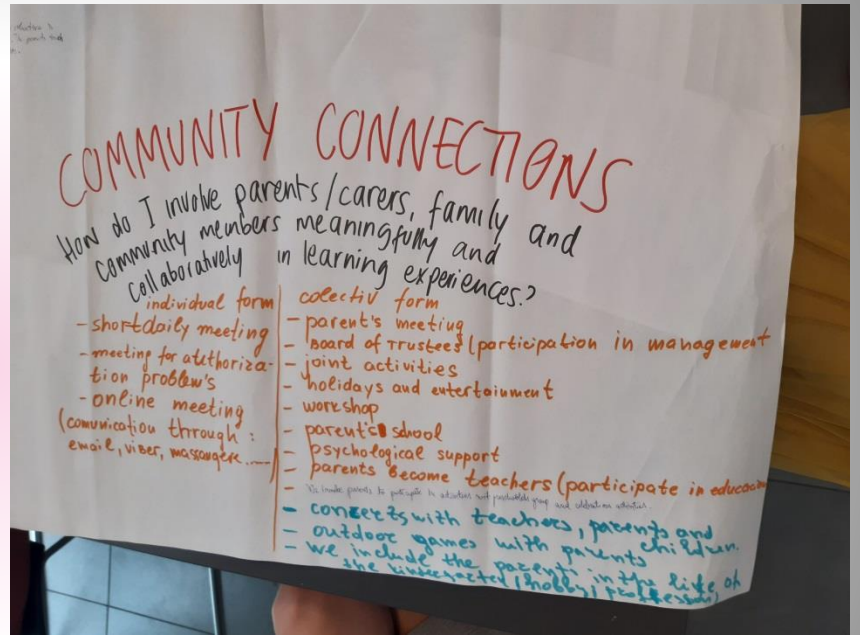 COMMUNITY CONNECTIONS
How do I involve parents/carers, family and
community members meaningfully and
collaboratively in learning experiences?
individual form
- short daily meeting
- meeting for atuthoriza-
tion problem's
- online meeting
(comunication through:
email, viber, massangere.....)
colectiv form
- parent's meeting
- Board of Trustees (participation in management
- joint activities
- holidays and entertainment
- workshop
- parent's school
- psychological support
- parents become teachers (participate in education
- We invite parents to participate in activities and group and celebration activities.
- concerts with teachers, parents and
children.
- outdoor games with parents
- we include the parents in the life of
the (hobby, proffession)